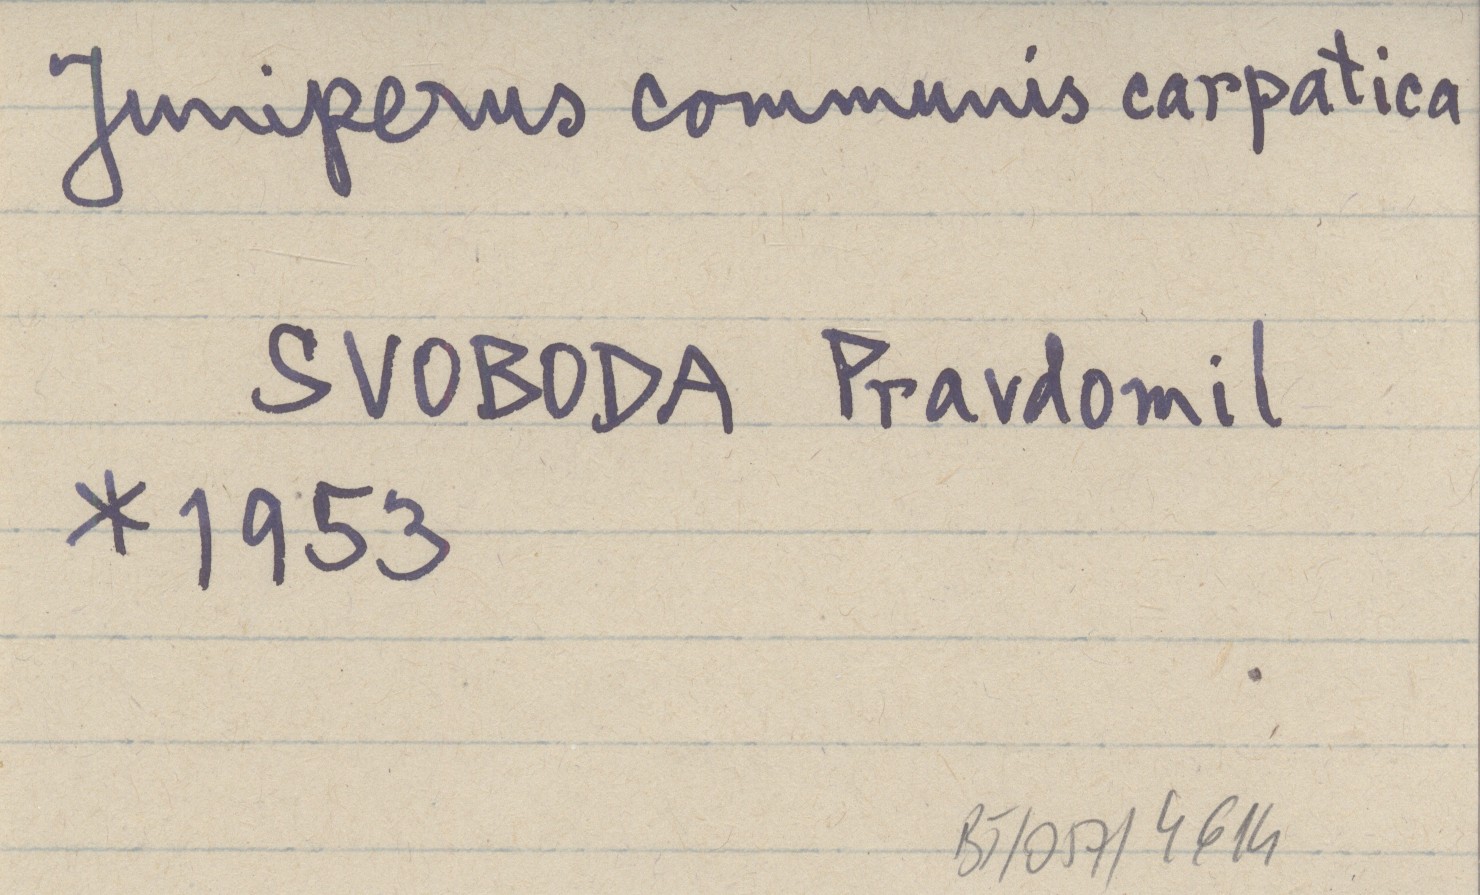 Juniperus communis carpatica
SVOBODA Pravdomil
*1953
BT/057/4614